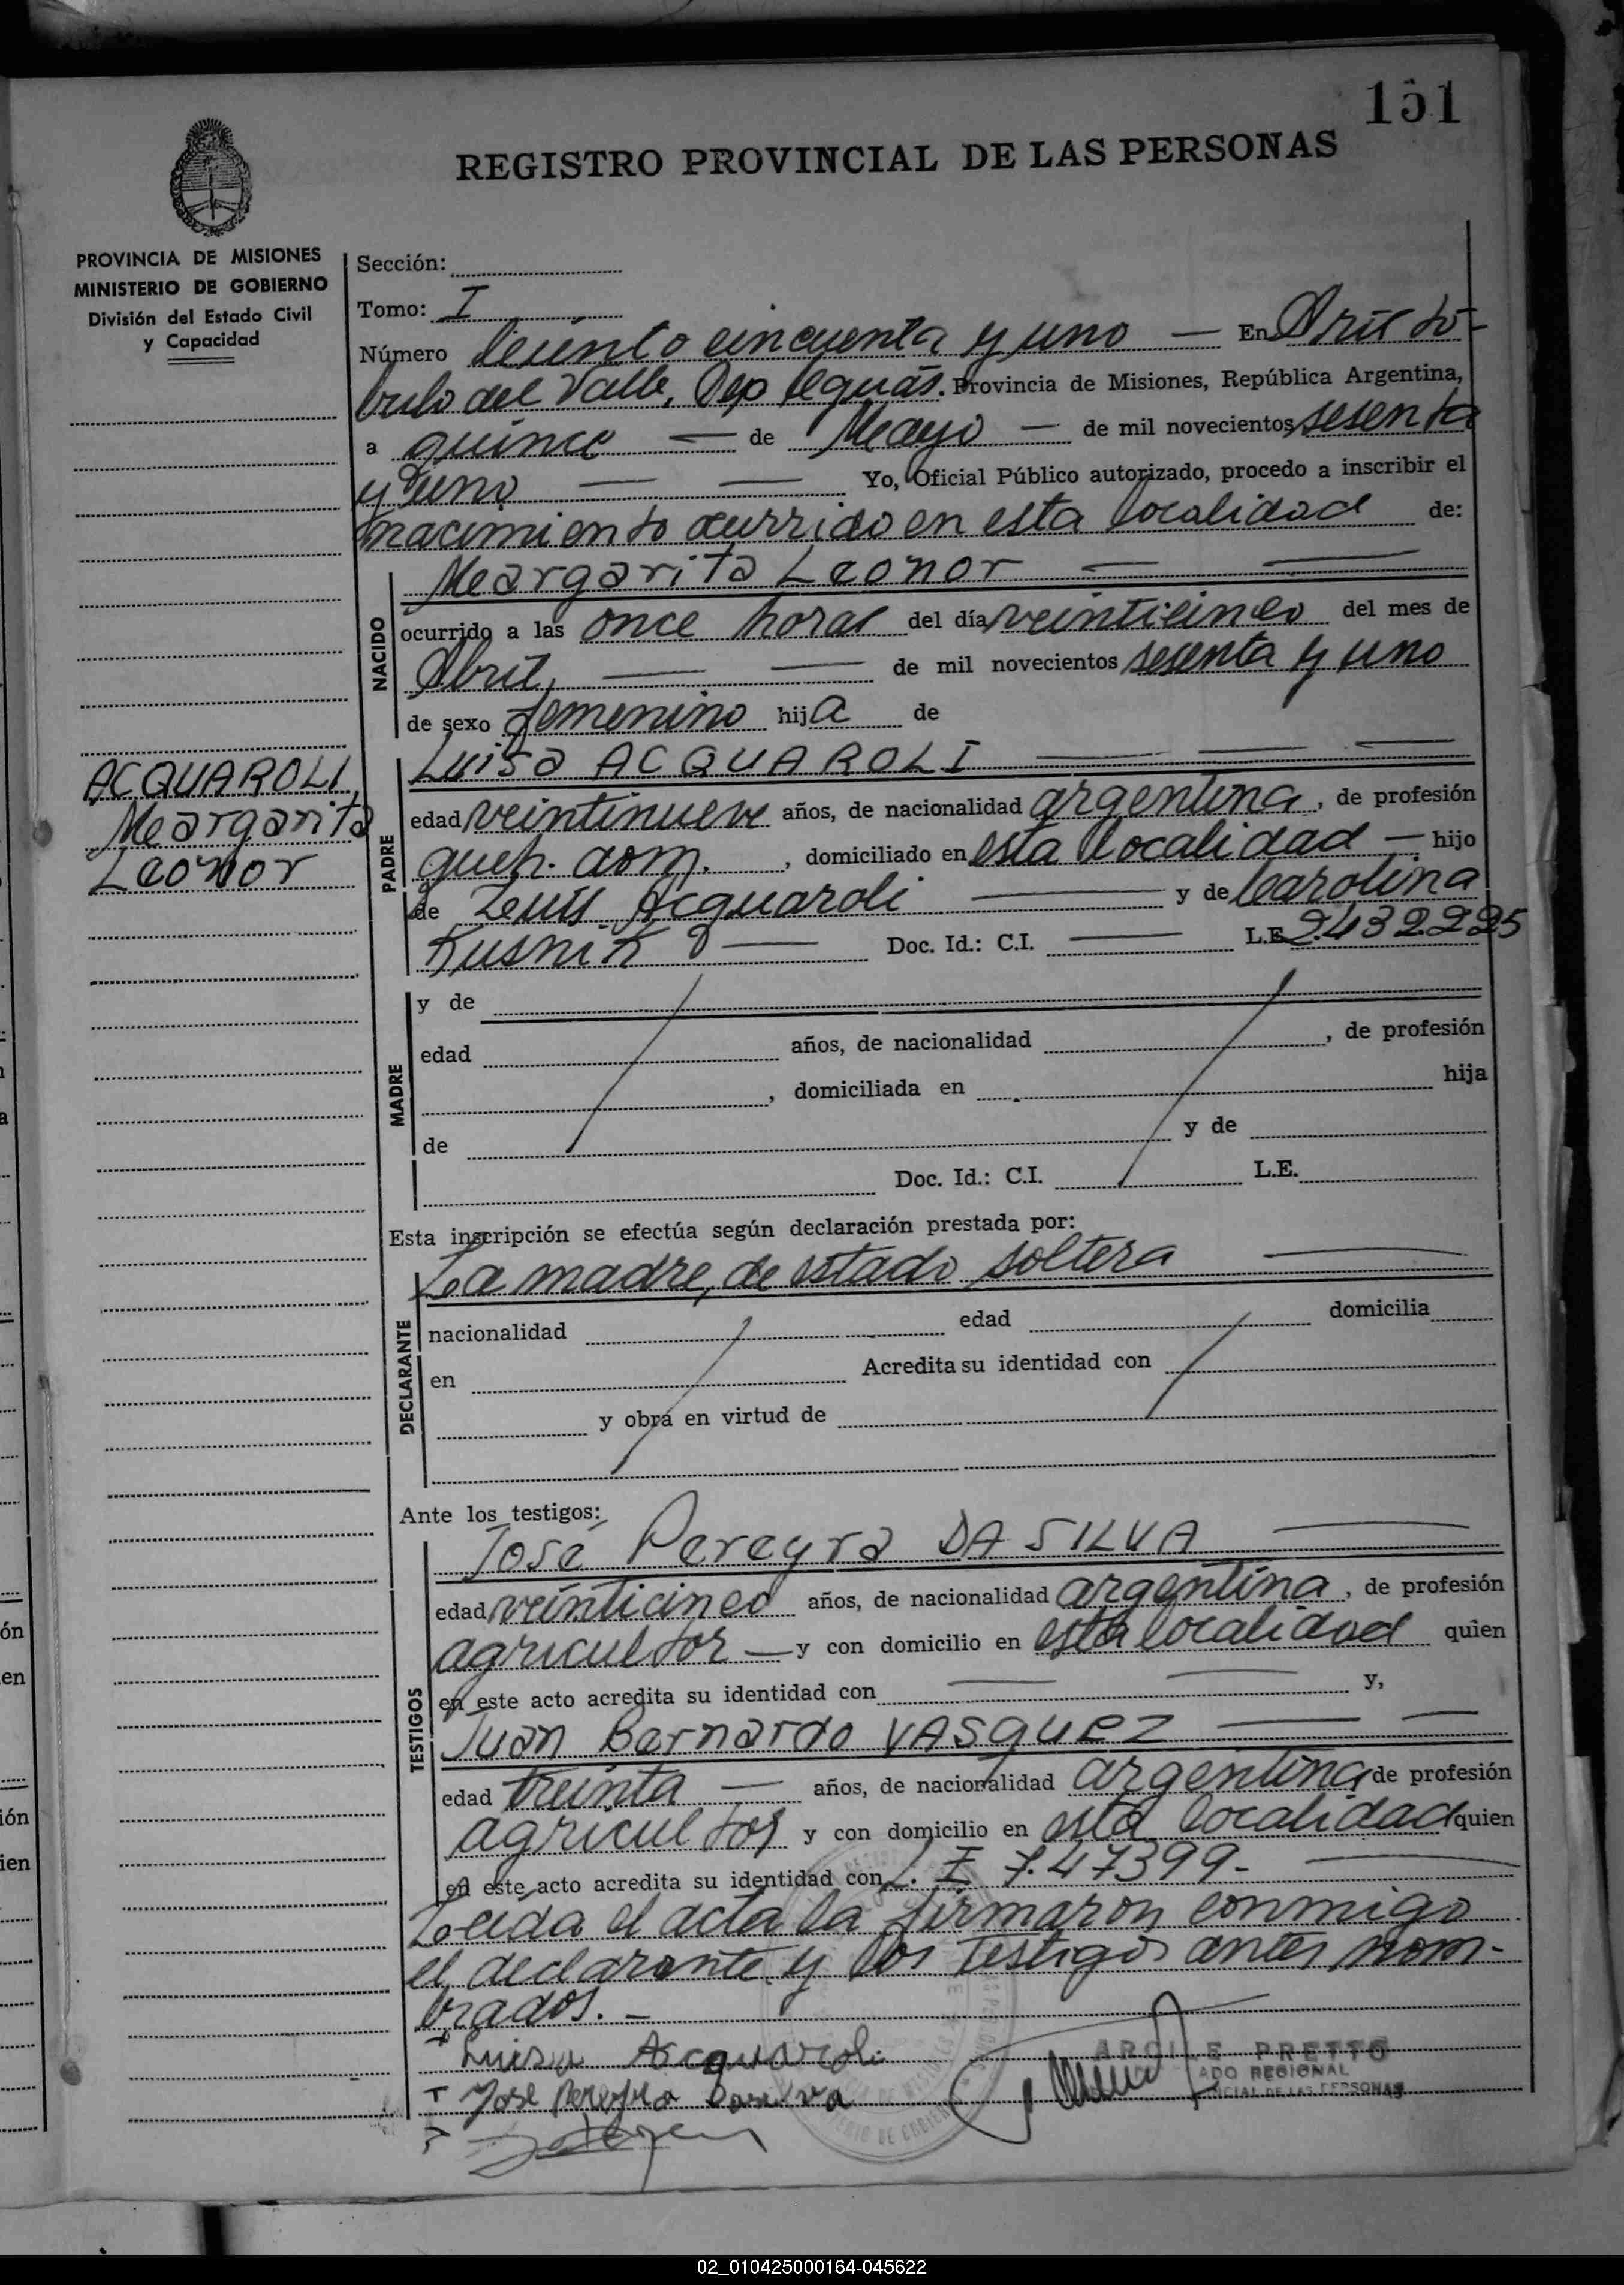 151
REGISTRO PROVINCIAL DE LAS PERSONAS
PROVINCIA DE MISIONES
MINISTERIO DE GOBIERNO
División del Estado Civil
y Capacidad
Sección:
Tomo: I
Número Ciento cincuenta y uno — En Aristó-
bulo del Valle, Dep Cguás. Provincia de Misiones, República Argentina,
a quince — de Mayo — de mil novecientos sesenta
y uno — — Yo, Oficial Público autorizado, procedo a inscribir el
nacimiento ocurrido en esta localidad de:
NACIDO
Margarita Leonor — —
ocurrido a las once horas del día veinticinco del mes de
Abril, — — de mil novecientos sesenta y uno
de sexo femenino hija de
ACQUAROLI,
Margarita
Leonor
PADRE
Luisa ACQUAROLI — — —
edad veintinueve años, de nacionalidad argentina, de profesión
queh. dom. , domiciliado en esta localidad — hijo
de Luis Acquaroli — y de Carolina
Kusnik — Doc. Id.: C.I. — L.E. 2.432.225
MADRE
y de
edad años, de nacionalidad , de profesión
, domiciliada en hija
de y de
Doc. Id.: C.I. L.E.
Esta inscripción se efectúa según declaración prestada por:
DECLARANTE
La madre, de estado soltera —
nacionalidad edad domicilia
en Acredita su identidad con
y obra en virtud de
Ante los testigos:
TESTIGOS
José Pereyra DA SILVA —
edad veinticinco años, de nacionalidad argentina, de profesión
agricultor — y con domicilio en esta localidad quien
en este acto acredita su identidad con — — y,
Juan Bernardo VASQUEZ — —
edad treinta — años, de nacionalidad argentina de profesión
agricultor y con domicilio en esta localidad quien
en este acto acredita su identidad con L. I 7.47399- —
Leída el acta la firmaron conmigo
el declarante y los testigos antes nom-
brados. —
+ Luisa Acquaroli
+ José Pereyra Dasilva
ARGILE PRETTO
ADO REGIONAL
CIAL DE LAS PERSONAS
02_010425000164-045622